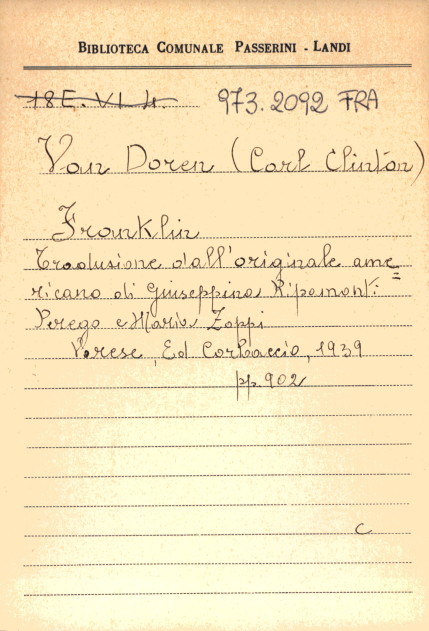 BIBLIOTECA COMUNALE PASSERINI - LANDI
18 E. VI. 4. 973.2092 FRA
Van Doren (Carl Clinton)
Franklin
Traduzione dall'originale ame=
ricano di Giuseppina Ripamonti
Perego e Mario Zappi
Varese, Ed Corbaccio, 1939
pp. 902
C